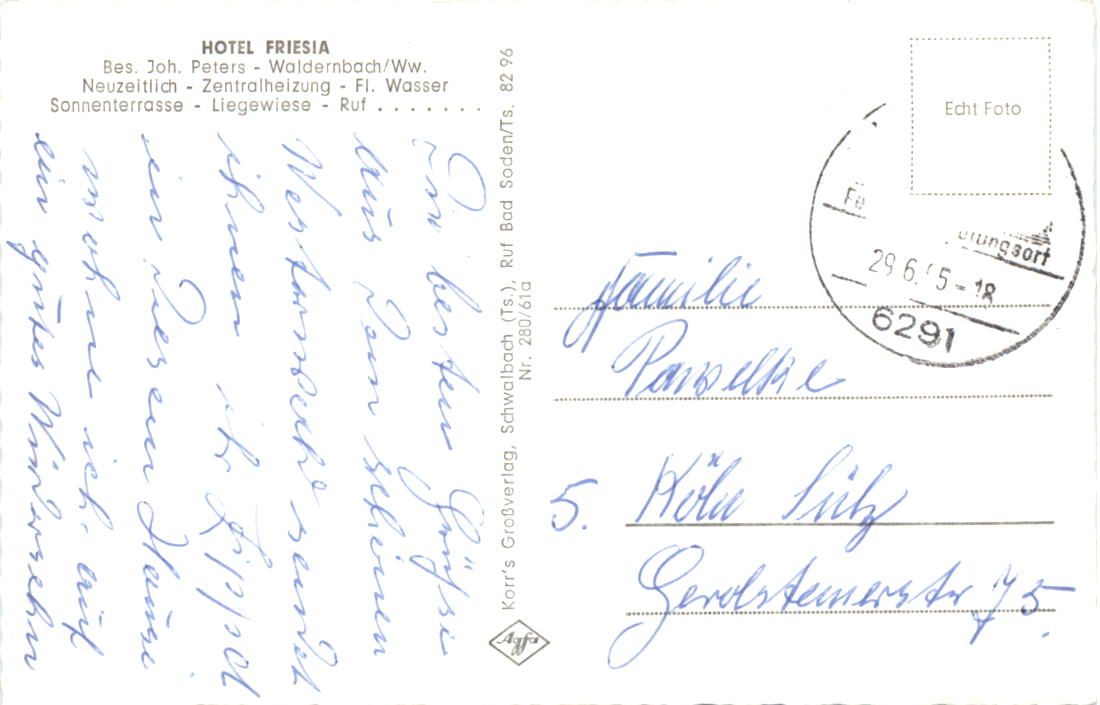 HOTEL FRIESIA
Bes. Joh. Peters - Waldernbach/Ww.
Neuzeitlich - Zentralheizung - Fl. Wasser
Sonnenterrasse - Liegewiese - Ruf . . . . . . .
Die besten Grüße
aus dem schönen
Westerwald sendet
ihnen ihr Lippold
in diesem Hause
wohne ich. auf
ein gutes Wiedersehn
Korr's Großverlag, Schwalbach (Ts.), Ruf Bad Soden/Ts. 82 96
Nr. 280/61a
Agfa
Echt Foto
29.6. 5-18
6291
Familie
Pawelke
5. Köln Sülz
Gerolsteinerstr 75